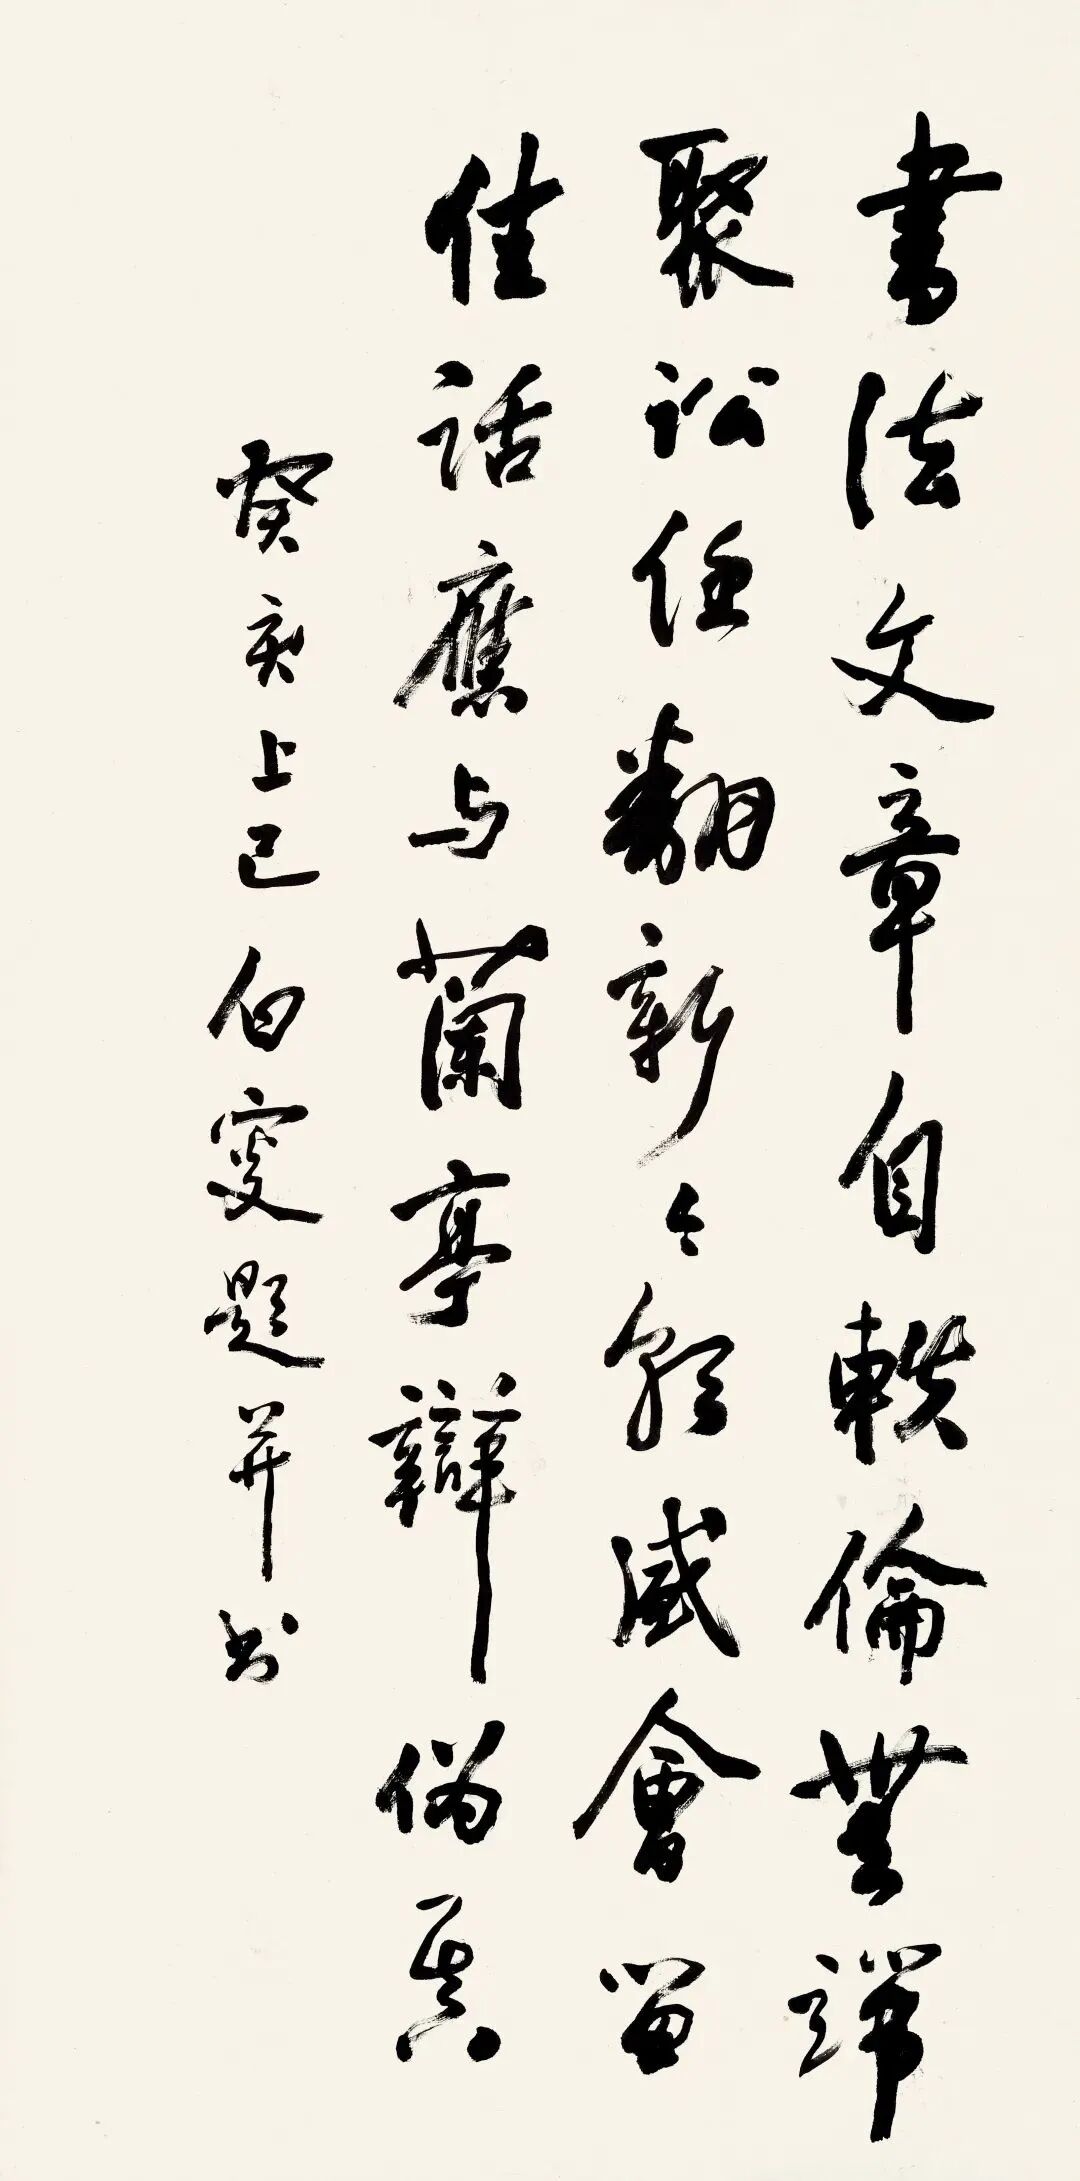 書法文章自軼倫無端
聚訟任翻新今朝盛會留
佳話應与蘭亭辯偽真
癸亥上巳白叟題并书